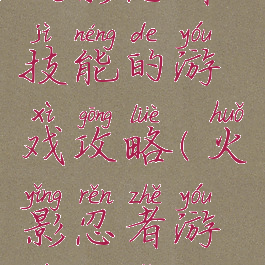 jì néng de yóu
技能的游
xì gōng lüè huǒ
戏攻略(火
yǐng rěn zhě yóu
影忍者游